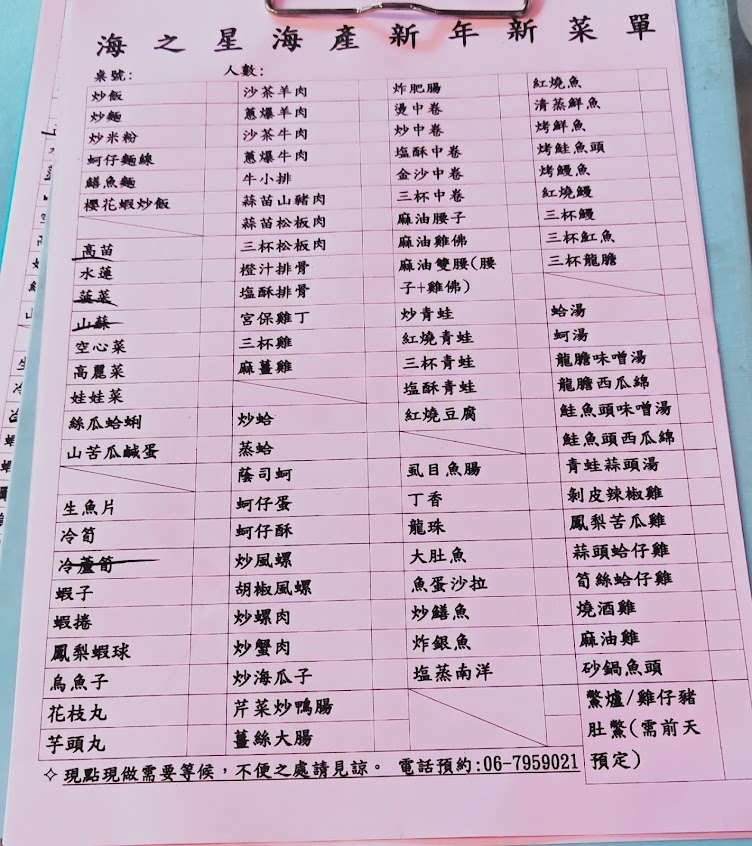 海之星海產新年新菜單
桌號:
人數:
炒飯
炒麵
炒米粉
蚵仔麵線
鱔魚麵
櫻花蝦炒飯
萵苗
水蓮
菠菜
山蘇
空心菜
高麗菜
娃娃菜
絲瓜蛤蜊
山苦瓜鹹蛋
生魚片
冷筍
冷蘆筍
蝦子
蝦捲
鳳梨蝦球
烏魚子
花枝丸
芋頭丸
沙茶羊肉
蔥爆羊肉
沙茶牛肉
蔥爆牛肉
牛小排
蒜苗山豬肉
蒜苗松板肉
三杯松板肉
橙汁排骨
塩酥排骨
宮保雞丁
三杯雞
麻薑雞
炒蛤
蒸蛤
蔭司蚵
蚵仔蛋
蚵仔酥
炒風螺
胡椒風螺
炒螺肉
炒蟹肉
炒海瓜子
芹菜炒鴨腸
薑絲大腸
炸肥腸
燙中卷
炒中卷
塩酥中卷
金沙中卷
三杯中卷
麻油腰子
麻油雞佛
麻油雙腰(腰
子+雞佛)
炒青蛙
紅燒青蛙
三杯青蛙
塩酥青蛙
紅燒豆腐
虱目魚腸
丁香
龍珠
大肚魚
魚蛋沙拉
炒鱔魚
炸銀魚
塩蒸南洋
紅燒魚
清蒸鮮魚
烤鮮魚
烤鮭魚頭
烤鰻魚
紅燒鰻
三杯鰻
三杯魟魚
三杯龍膽
蛤湯
蚵湯
龍膽味噌湯
龍膽西瓜綿
鮭魚頭味噌湯
鮭魚頭西瓜綿
青蛙蒜頭湯
剝皮辣椒雞
鳳梨苦瓜雞
蒜頭蛤仔雞
筍絲蛤仔雞
燒酒雞
麻油雞
砂鍋魚頭
鱉爐/雞仔豬
肚鱉(需前天
預定)
✧現點現做需要等候，不便之處請見諒。 電話預約:06-7959021